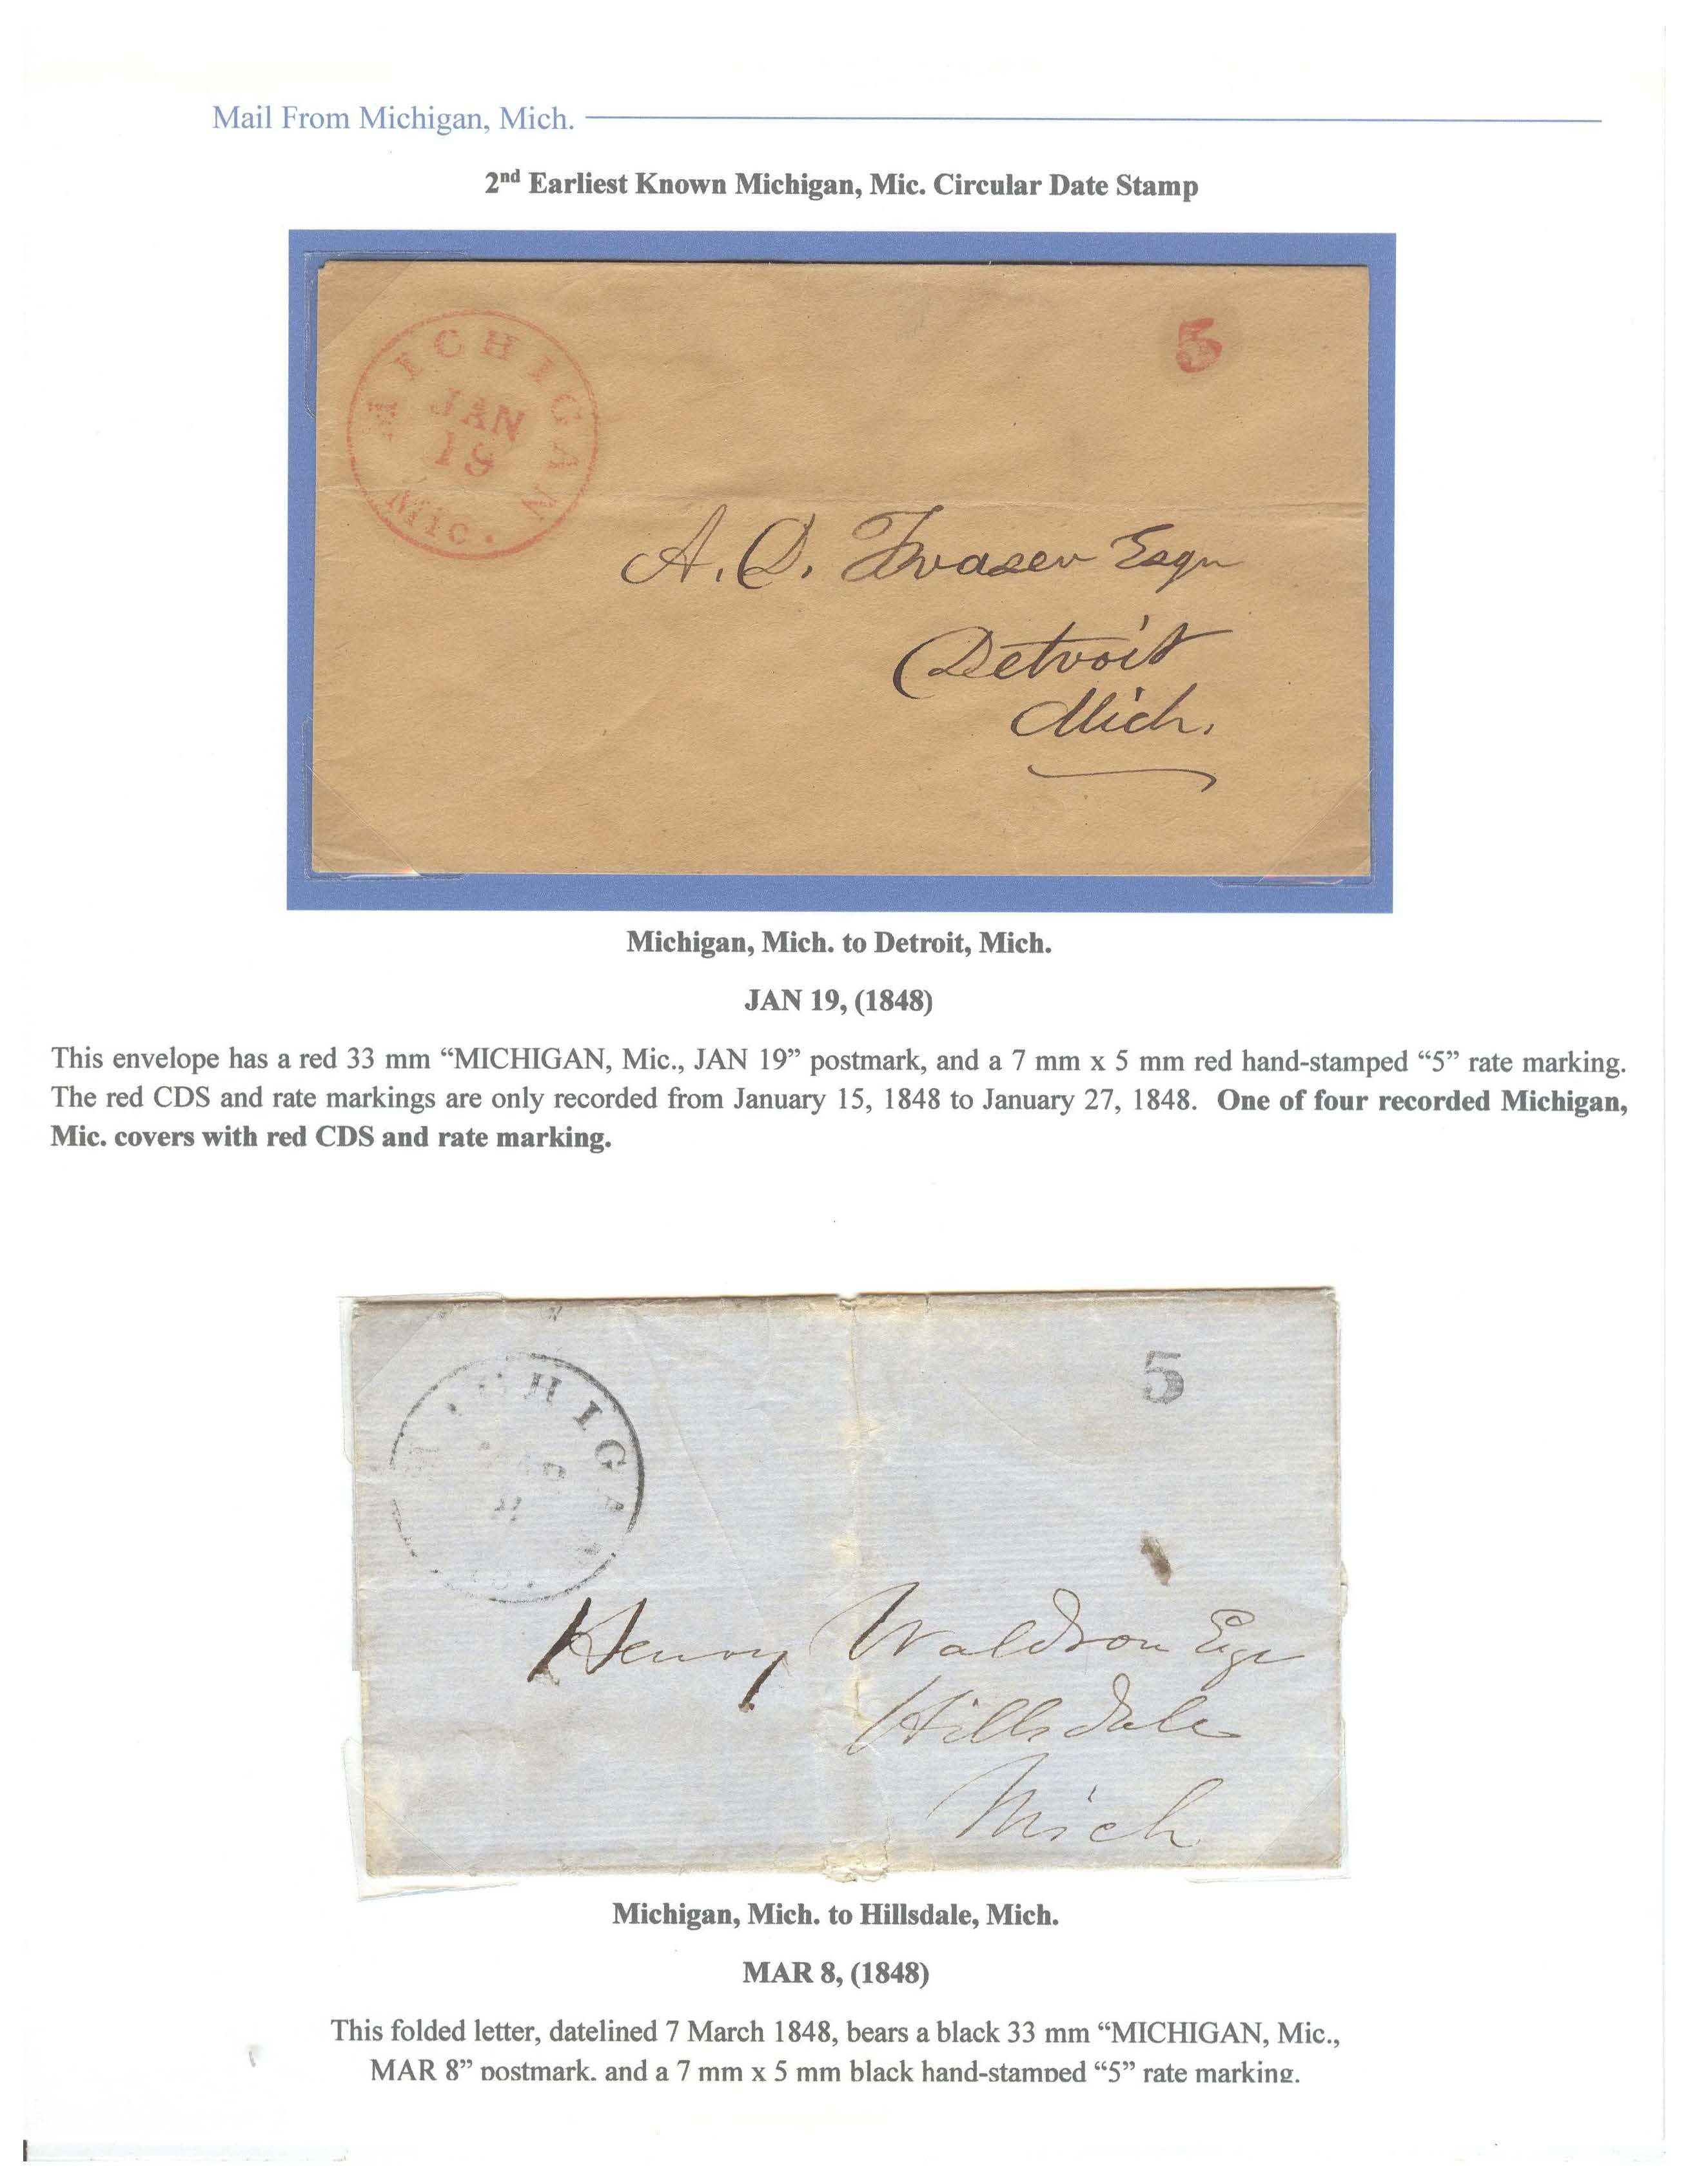 Mail From Michigan, Mich.
2nd Earliest Known Michigan, Mic. Circular Date Stamp
MICHIGAN
JAN
19
Mic.
5
A. D. Fraser Esqr
Detroit
Mich.
Michigan, Mich. to Detroit, Mich.
JAN 19, (1848)
This envelope has a red 33 mm “MICHIGAN, Mic., JAN 19” postmark, and a 7 mm x 5 mm red hand-stamped “5” rate marking.
The red CDS and rate markings are only recorded from January 15, 1848 to January 27, 1848. One of four recorded Michigan,
Mic. covers with red CDS and rate marking.
MICHIGAN
MAR
8
5
Henry Waldron Esqr
Hillsdale
Mich
Michigan, Mich. to Hillsdale, Mich.
MAR 8, (1848)
This folded letter, datelined 7 March 1848, bears a black 33 mm “MICHIGAN, Mic.,
MAR 8” postmark, and a 7 mm x 5 mm black hand-stamped “5” rate marking.